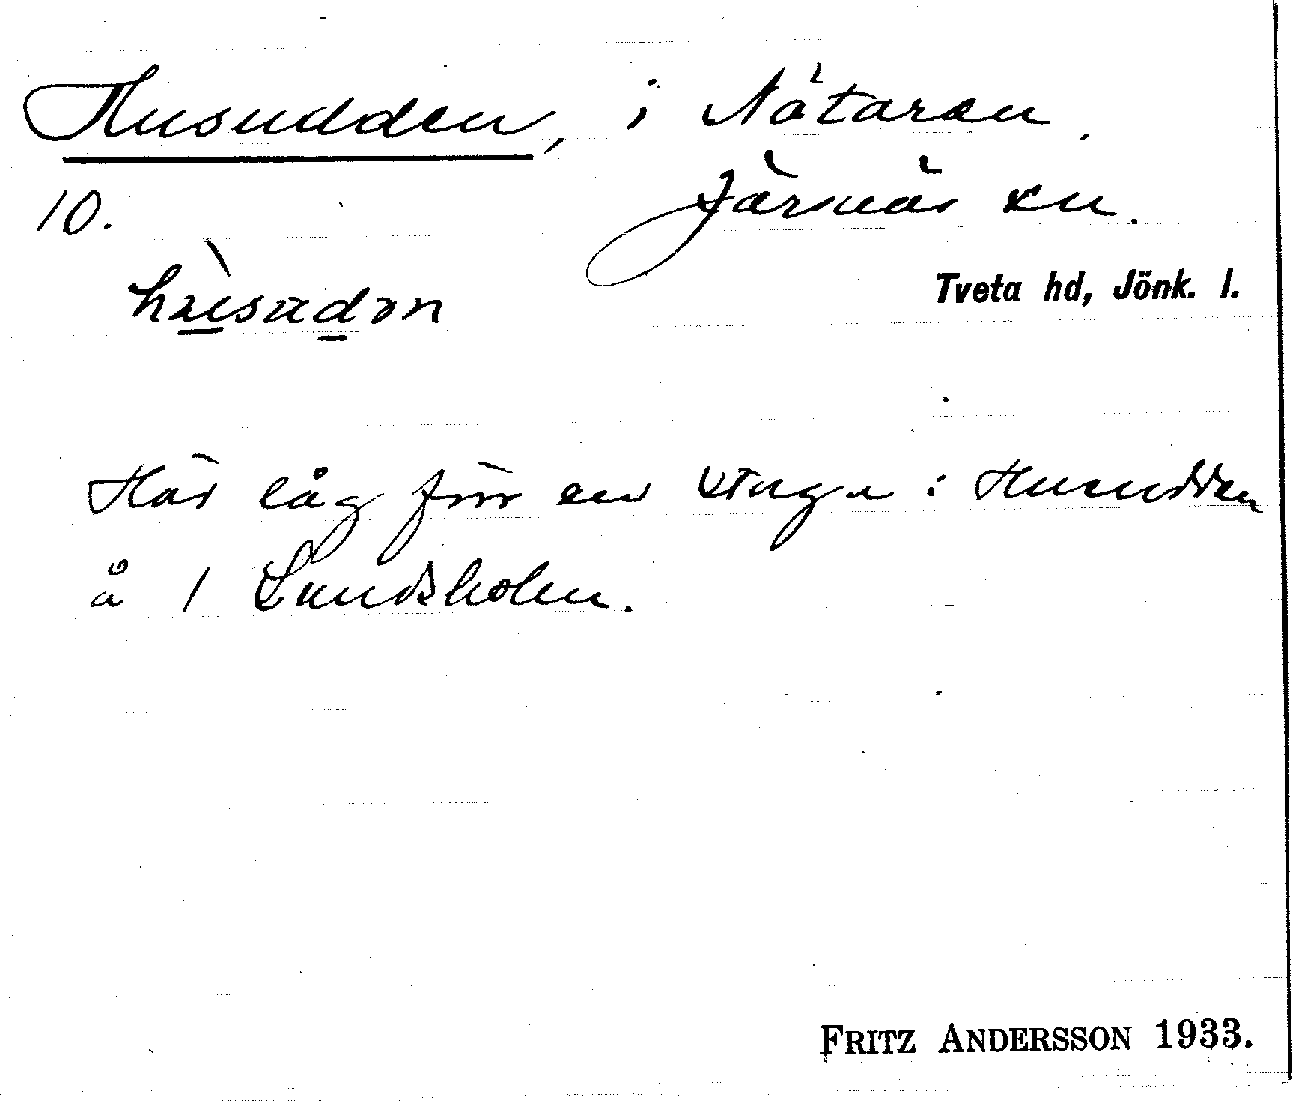 Husudden, i Nätaren.
10.
Järsnäs sn.
hùsudən
Tveta hd, Jönk. l.
Här låg förr en stuga: Husudden
å 1 Lundsholm.
FRITZ ANDERSSON 1933.